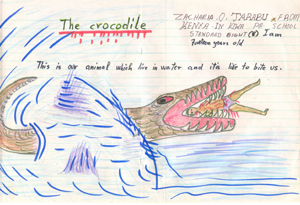 The crocodile
ZACHARIA .O. JARABU FROM
KENYA IN KIWA PR, SCHOOL
STANDARD EIGHT (8) I am
years old
This is an animal which live in water and it's like to bite us.